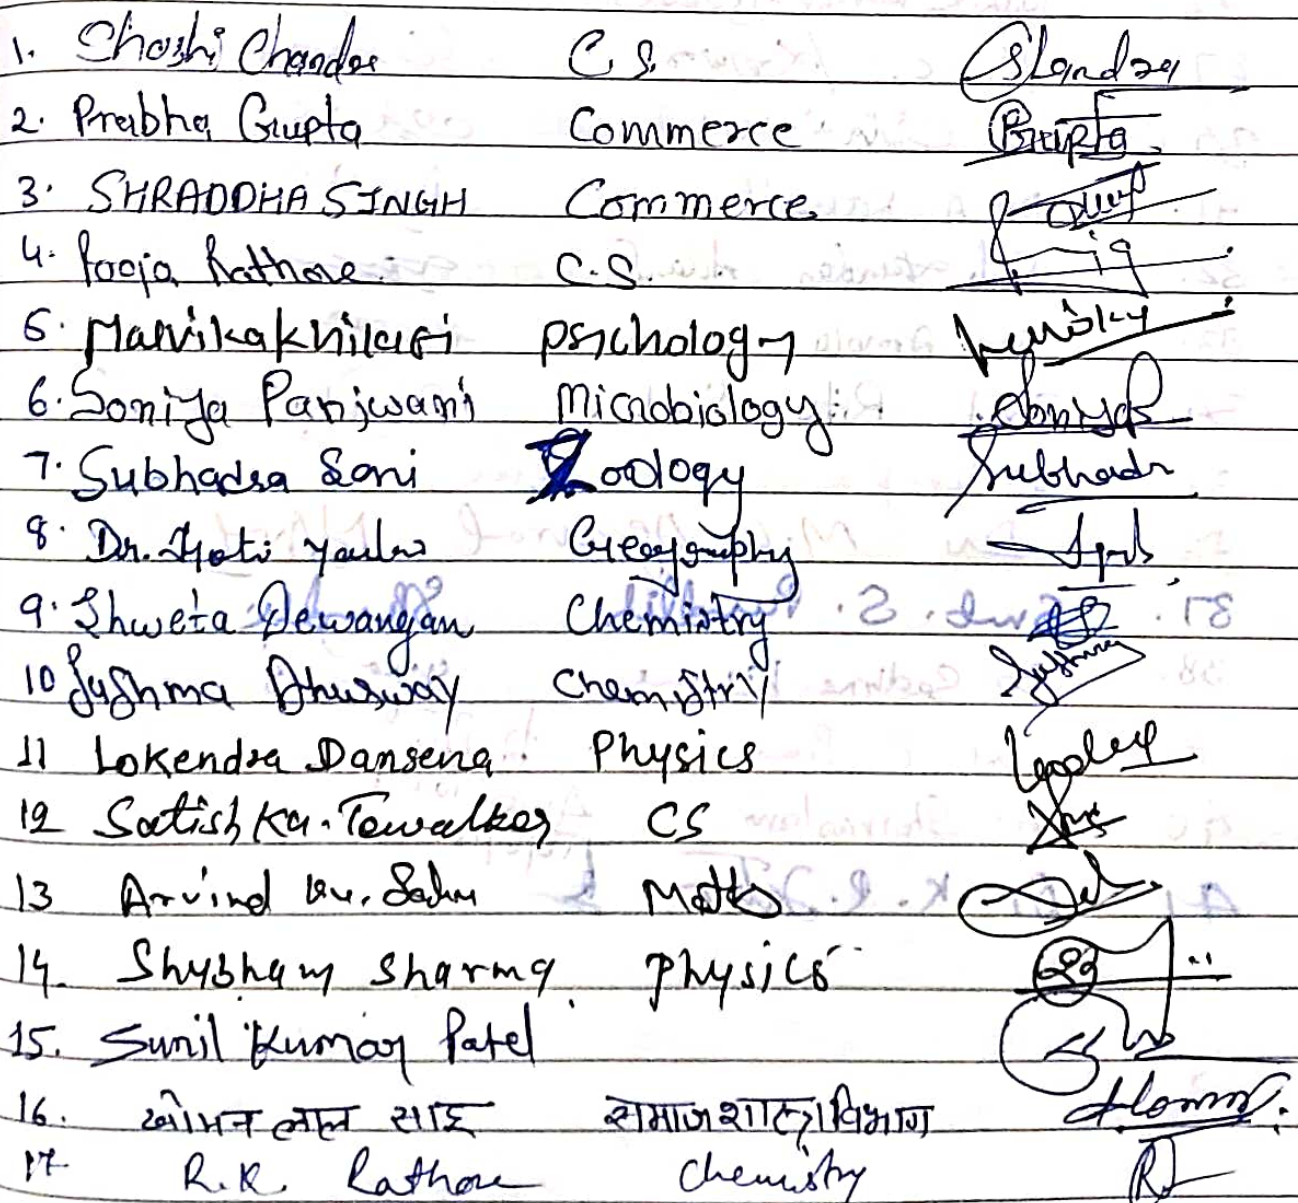 1. Shashi Chandra C.S. Chandra
2. Prabha Gupta Commerce PGupta
3. SHRADDHA SINGH Commerce
4. Pooja Rathore C.S.
5. Malvika khilari psychology
6. Soniya Panjwani Microbiology Soniya
7. Subhadra Soni Zoology Subhadra
8. Dr. Jyoti Yadav Geography
9. Shweta Dewangan Chemistry
10 Sushma Dhusway Chemistry Sushma
11 Lokendra Dansena Physics
12 Satish Ku. Tewalker CS
13 Arvind Ku. Sahu Maths
14. Shubham Sharma Physics
15. Sunil Kumar Patel
16. खोमन लाल साहू समाजशास्त्र विभाग
17 R.K. Rathore Chemistry